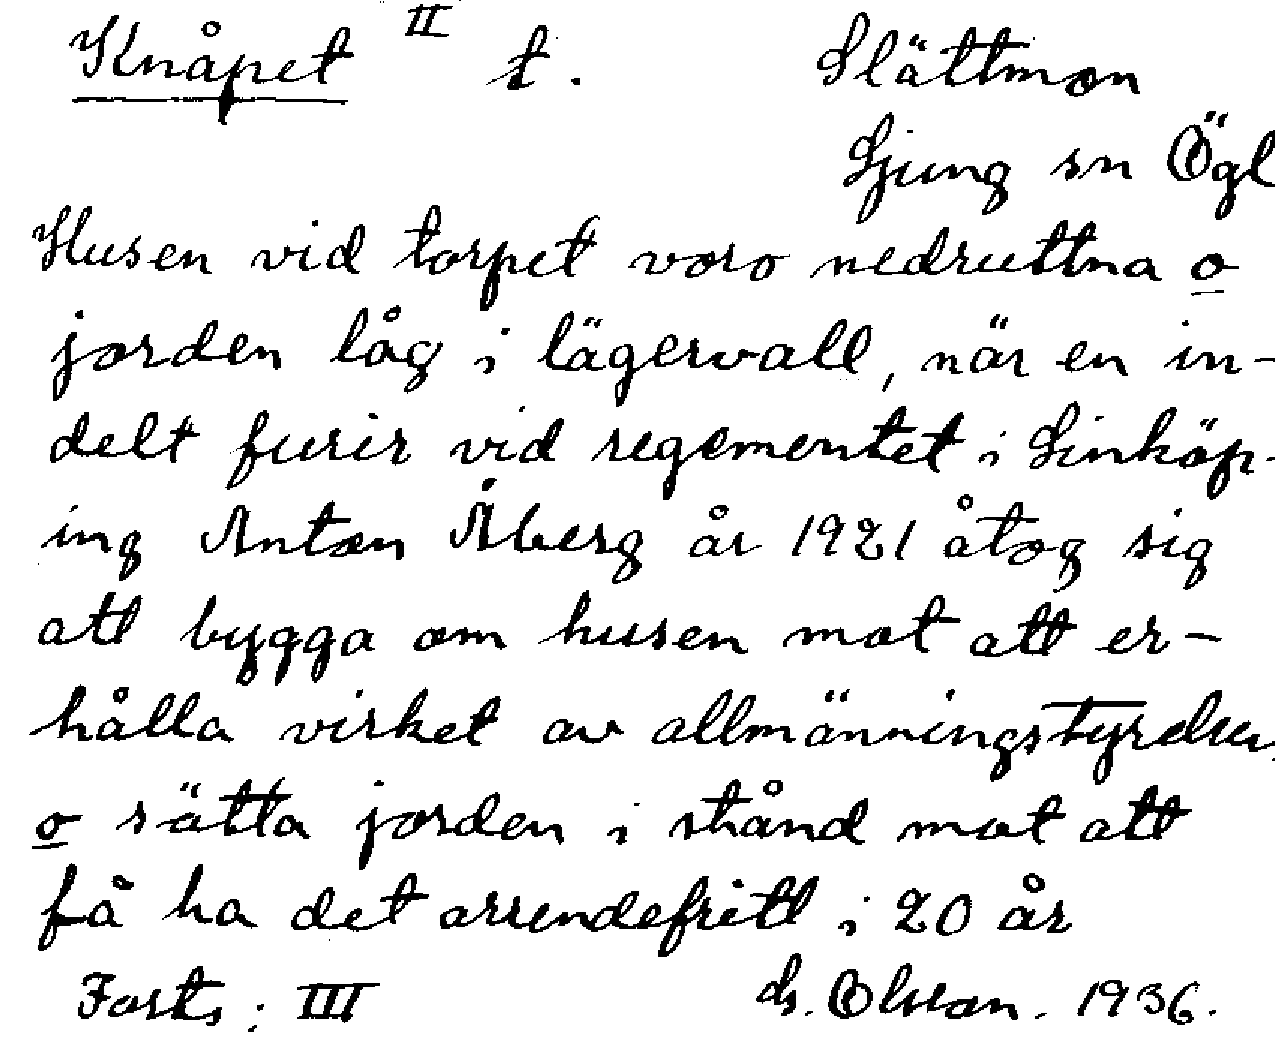 Knåpet II t. Slättmon
Ljung sn Ögl
Husen vid torpet voro nedruttna o
jorden låg i lägervall, när en in-
delt furir vid regementet i Linköp-
ing Anton Åberg år 1921 åtog sig
att bygga om husen mot att er-
hålla virket av allmänningstyrelsen
o sätta jorden i stånd mot att
få ha det arrendefritt i 20 år
Forts: III G. Olsson. 1936.